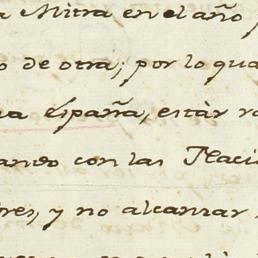 a Mitra en el año
o de otra; por lo qua
va España, estàr
ando con las Naci
res, y no alcanzar